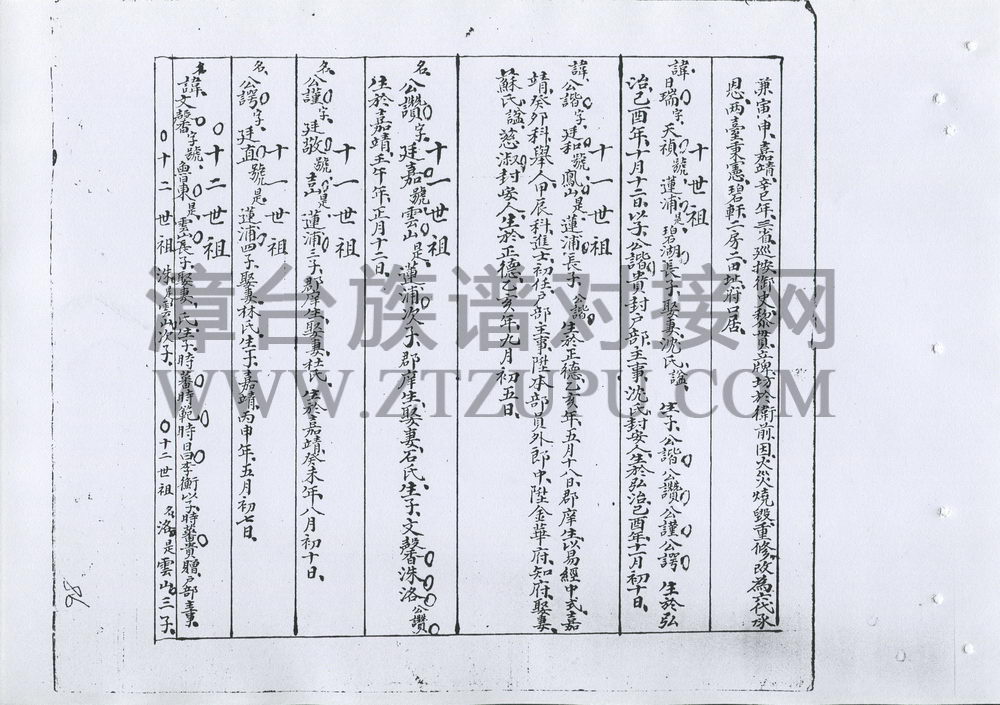 兼寅申、嘉靖辛巳年、三省巡按御史黎貫立牌坊於衛前因火災燒毀重修、改為六代承
恩、兩臺秉憲、碧軒二房二田批府口居、
十世祖
諱日瑞字天禎號蓮浦是碧湖長子娶妻沈氏謚 生子公諧公讚公謹公諤 生於弘
治己酉年、十月十二日、以子公諧貴封戶部主事、沈氏封安人生於弘治己酉年十一月初十日、
十一世祖
諱公諧字廷和號鳳山是蓮浦長子、公諧生於正德乙亥年、五月十八日、郡庠生以易經中式嘉
靖癸卯科舉人甲辰科進士初任戶部主事陞本部員外郎中、陞金華府知府、娶妻
蘇氏謚慈淑封安人生於正德乙亥年九月初五日、
十一世祖
名公讚字廷嘉號雲山是蓮浦次子、郡庠生、娶妻石氏、生子、文馨洙洛公讚
生於嘉靖壬午年正月十二日、
十一世祖
名公謹字廷敬號吉山蓮浦三子、郡庠生娶妻杜氏、生於嘉靖癸未年、八月初十日、
十一世祖
名公諤字廷直號是蓮浦四子、娶妻林氏、生子、嘉靖丙申年、五月初七日、
十二世祖
名諱文馨字號魯東是雲山長子、娶妻氏、生子、時蕃時範時昌李衡以子時蕃貴贈戶部主事、
十二世祖 洙是雲山次子、 十二世祖 名洛是雲山三子、
98
漳台族谱对接网
WWW.ZTZUPU.COM